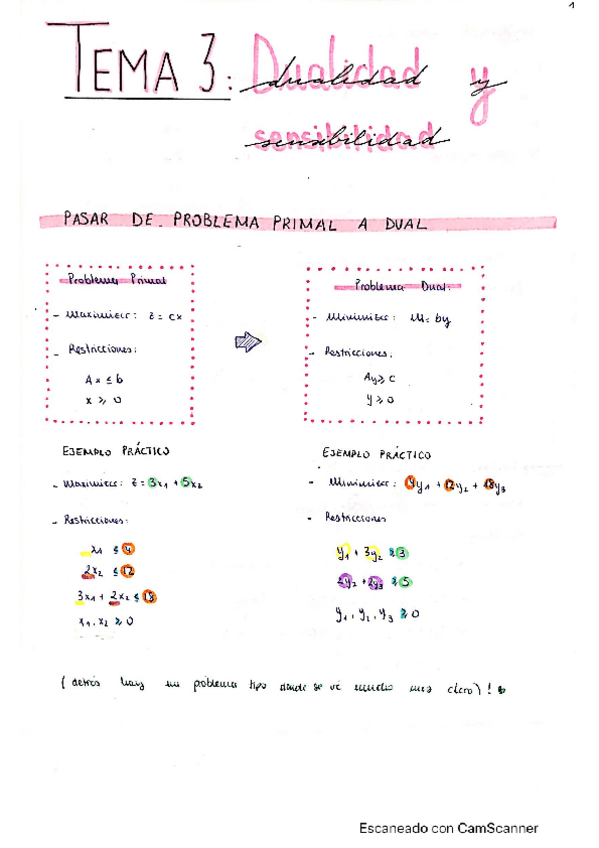 1
TEMA 3: Dualidad y
sensibilidad
PASAR DE PROBLEMA PRIMAL A DUAL
Problema Primal
- Maximizar: z = cx
- Restricciones:
Ax ≤ b
x ≥ 0
Problema Dual:
- Minimizar: W = by
- Restricciones:
Ay ≥ c
y ≥ 0
EJEMPLO PRÁCTICO
- Maximizar: z = 3x1 + 5x2
- Restricciones:
x1 ≤ 4
2x2 ≤ 12
3x1 + 2x2 ≤ 18
x1, x2 ≥ 0
EJEMPLO PRÁCTICO
- Minimizar: 4y1 + 12y2 + 18y3
- Restricciones
y1 + 3y2 ≥ 3
2y2 + 2y3 ≥ 5
y1, y2, y3 ≥ 0
(detrás hay un problema tipo donde se ve mucho mas claro)!
Escaneado con CamScanner